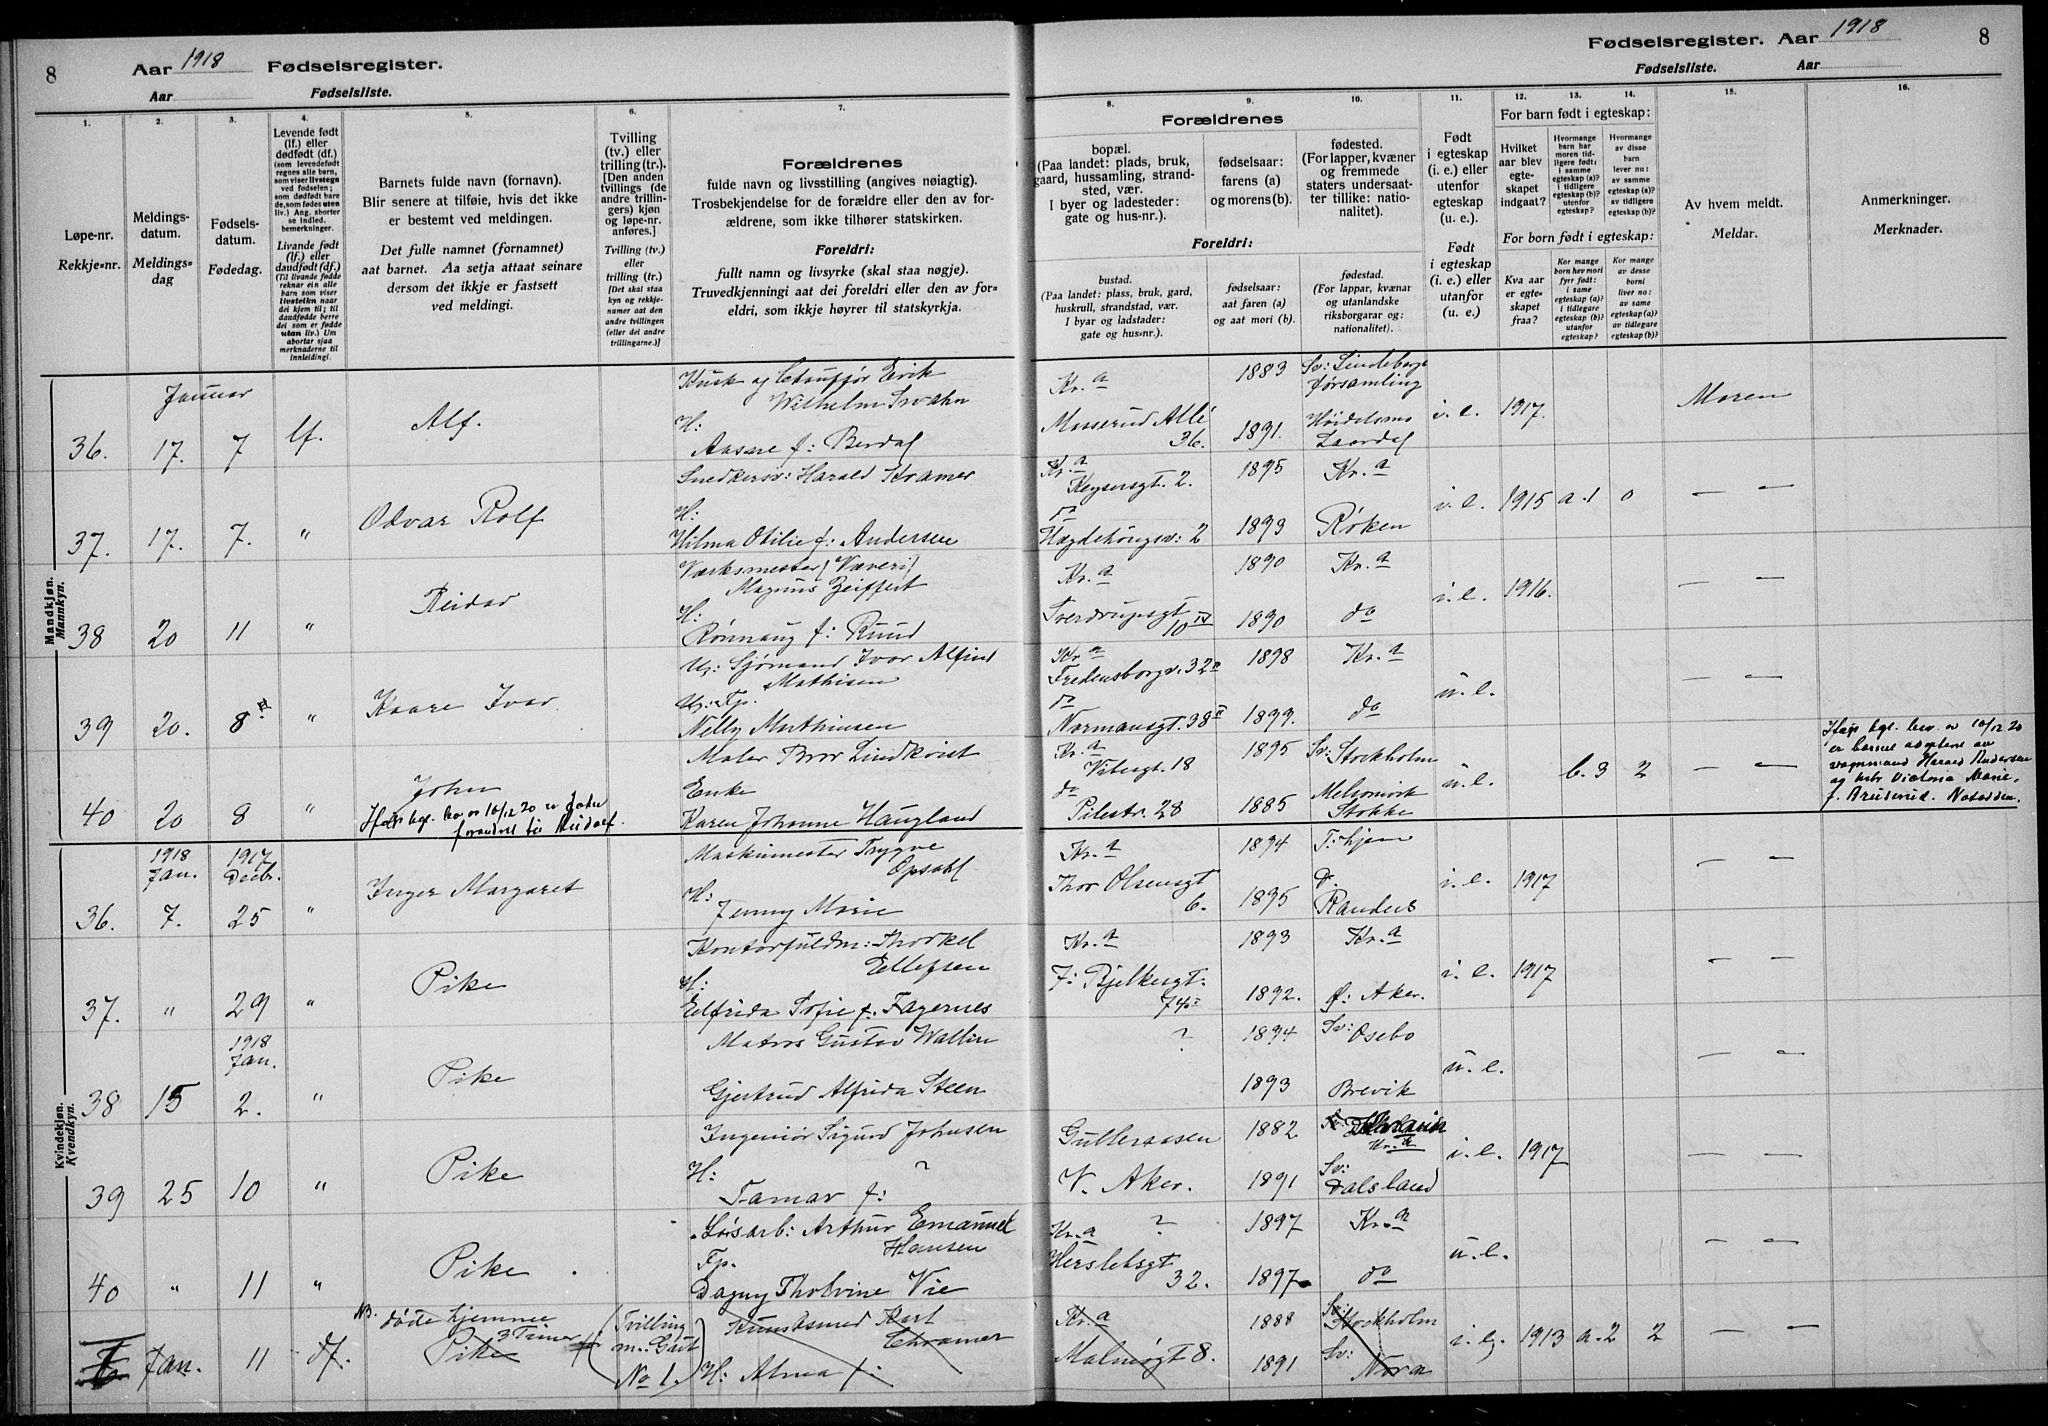 8
Aar 1918 Fødselsregister.
Aar Fødselsliste.
1.
2.
3.
4.
5.
6.
7.
Løpe-nr.
Rekkje-nr.
Meldings-
datum.
Meldings-
dag
Fødsels-
datum.
Fødedag.
Levende født
(lf.) eller
dødfødt (df.)
(som levendefødt
regnes alle barn,
som viser livstegn
ved fødselen;
som dødfødt bare
de, som fødes uten
liv.) Ang. aborter
se indled.
bemerkninger.
Livande født
(lf.) eller
daudfødt (df.)
(Til livande fødde
reknar ein alle
born som viser
livsteikn naar
dei kjem til; til
daudfødde berre
dei som er fødde
utan liv.) Um
abortar sjaa
merknaderne til
innleidingi.
Barnets fulde navn (fornavn).
Blir senere at tilføie, hvis det ikke
er bestemt ved meldingen.
Det fulle namnet (fornamnet)
aat barnet. Aa setja attaat seinare
dersom det ikkje er fastsett
ved meldingi.
Tvilling
(tv.) eller
trilling (tr.).
[Den anden
tvillings (de
andre trillin-
gers) kjøn
og løpe-nr.
anføres.]
Tvilling (tv.)
eller
trilling (tr.)
[Det skal staa
kyn og rekkje-
numer aat den
andre tvillingen
(eller dei andre
trillingarne.)]
Forældrenes
fulde navn og livsstilling (angives nøiagtig).
Trosbekjendelse for de forældre eller den av for-
ældrene, som ikke tilhører statskirken.
Foreldri:
fullt namn og livsyrke (skal staa nøgje).
Truvedkjenningi aat dei foreldri eller den av for-
eldri, som ikkje høyrer til statskyrkja.
Mandkjøn.
Mannkyn.
Januar
36. 17. 7 lf. Alf.
Kusk og Chauffør Erik
Wilhelm Svahn
H:
Aasne f: Berdal
37. 17. 7. " Odvar Rolf
Snedkersv: Harald Kramer
H:
Hilma Otilie f: Andersen
38 20 11 " Reidar
Værksmester (Væveri)
Magnus Zeiffert
H:
Rønnaug f: Ruud
39 20. 8. " Kaare Ivar
U: Sjømand Ivar Alfred
Mathisen
U: Fp.
Nelly Mathiesen
40 20 8 " John
Ifølge kgl. bev. av 10/12 20 er John
forandret til Reidolf.
Maler Bror Lindkvist
Enke
Karen Johanne Haugland
Kvindekjøn.
Kvendkyn.
1918 1917
Jan. Decbr.
36. 7. 25 " Inger Margaret
Maskinmester Trygve
Opsahl
H:
Jenny Marie
37. " 29 " Pike
Kontorfuldm: Thorkel
Ellefsen
H:
Elfrida Sofie f. Fagernes
1918
Jan.
38 15 2. " Pike
Matros Gustav Wallin
Gjertrud Alfrida Steen
39 25 10 " Pike
Ingeniør Sigurd Johnsen
H: ?
Tamar f:
40 " 11 " Pike
Løsarb: Arthur Emanuel
Hansen
Fp.
Dagny Tholvine Vie
NB. døde hjemme
3 Timer
Jan. 11 df. Pike
(Tvilling
m. Gut
No 1.)
Kunstsmed Karl
Chramer
H: Alma f:
Fødselsregister. Aar 1918 8
Fødselsliste. Aar
8.
9.
10.
11.
12.
13.
14.
15.
16.
Forældrenes
bopæl.
(Paa landet: plads, bruk,
gaard, hussamling, strand-
sted, vær.
I byer og ladesteder:
gate og hus-nr.).
fødselsaar:
farens (a)
og morens (b).
fødested.
(For lapper, kvæner
og fremmede
staters undersaat-
ter tillike: natio-
nalitet).
Foreldri:
bustad.
(Paa landet: plass, bruk, gard,
huskrull, strandstad, vær.
I byar og ladstader:
gate og hus-nr.).
fødselsaar:
aat faren (a)
og aat mori (b).
fødestad.
(For lappar, kvænar
og utanlandske
riksborgarar og:
nationalitet).
Født
i egteskap
(i. e.) eller
utenfor
egteskap
(u. e.).
Født
i egteskap
(i. e.) eller
utanfor
(u. e.).
For barn født i egteskap:
Hvilket
aar blev
egte-
skapet
indgaat?
Hvormange
barn har
moren tid-
ligere født:
i samme
egteskap (a)?
i tidligere
egteskap (b)?
utenfor
egteskap?
Hvormange
av disse
barn
lever nu:
av samme
egteskap (a)?
av tidligere
egteskap (b)?
For born født i egteskap:
Kva aar
er egte-
skapet
fraa?
Kor mange
born hev mori
fyrr født:
i same
egteskap (a)?
i tidlegare
egteskap (b)?
utanfor
egteskap?
Kor mange
av desse
borni
liver no:
av same
egteskap (a)?
av tidlegare
egteskap (b)?
Av hvem meldt.
Meldar.
Anmerkninger.
Merknader.
Kr.a 1883 Sv: Lindeberg
forsamling
Masserud Allé
36. 1891. Høidalsmo
Laardal
i. e. 1917. Moren
Kr.a
Keysersgt. 2. 1895 Kr.a
do
Hægdehaugsv: 2 1893 Røken
i. e. 1915 a. 1 0 — —
Kr.a 1890 Kr.a
Sverdrupsgt
10 IV 1890 do
i. e. 1916. — —
Kr.a
Fredensborgv. 32 II 1898 Kr.a
do
Normansgt. 38 II 1899. do
u. e. — —
Kr.a
Vibesgt. 18 1895 Sv: Stockholm
do
Pilestr. 28 1885 Melsomvik
Stokke
u. e. b. 3 2 — —
Ifølge kgl. bev. av 10/12 20
er barnet adoptert av
vognmand Harald Andersen
og hstr Victoria Marie,
f. Bruserud. Notodden.
Kr.a 1894 T.hjem
Thor Olsensgt
6. 1895 D.
Randers
i. e. 1917 — —
Kr.a 1893 Kr.a
J: Bjelkesgt:
1892. Ø: Aker.
i. e. 1917 — —
? 1894 Sv: Osebo
1893 Brevik
u. e. — —
Gulleraasen 1882
Kr.a
V. Aker. 1891 Sv:
Dalsland
i. e. 1917 — —
Kr.a ? 1897 Kr.a
Herslebsgt
32. 1897. do
u. e. — —
Kr.a 1888 Sv:
Stockholm
Malmøgt 8. 1891 Sv:
Nora
i. eg. 1913 a. 2 2 — —